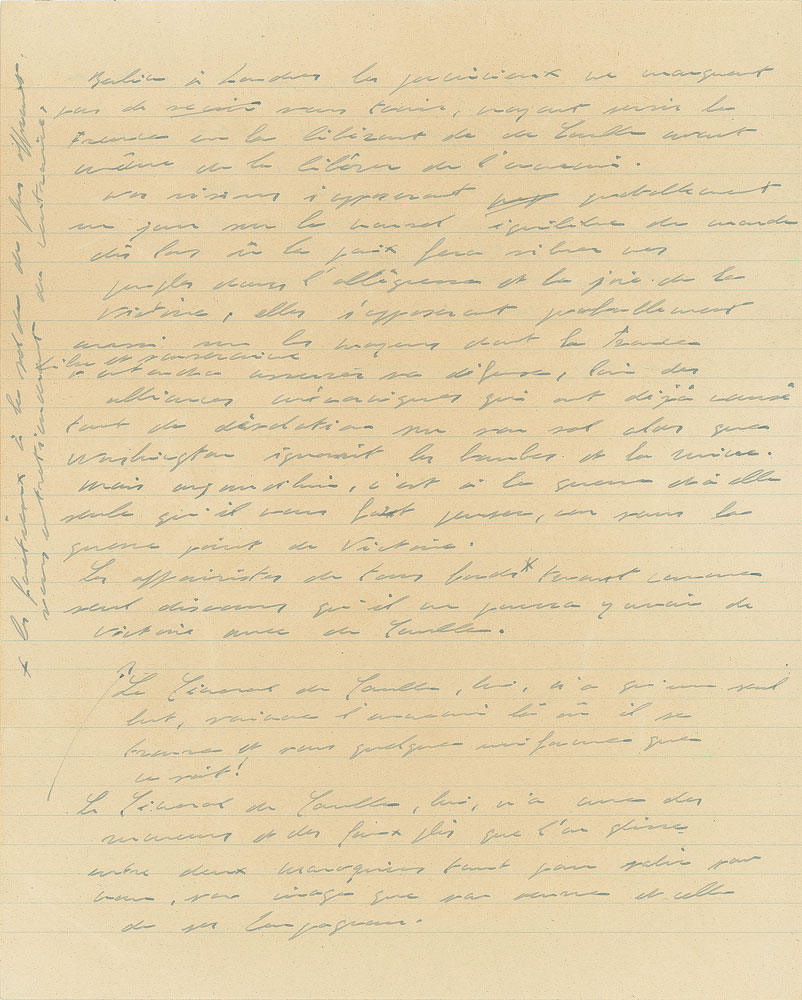 à Londres les ne manquent
pas de vous tenir, ayant la
France en la libérant de de Gaulle avant
même de la libérer de l'ennemi.
Nos visions s'opposeront probablement
un jour sur le nouvel équilibre du monde
dès lors où la paix fera vibrer nos
peuples dans l'allégresse et la joie de la
Victoire, elles s'opposeront probablement
aussi sur les moyens dont la France
libre et souveraine
entendra assurer sa défense, loin des
alliances qui ont déjà causé
tant de désolation sur son sol alors que
Washington ignorait les bombes et la ruine.
Mais aujourd'hui, c'est à la guerre et à elle
seule qu'il nous faut penser, car sans la
guerre point de Victoire.
Les affairistes de tous bords* tenant comme
seul discours qu'il ne pourra y avoir de
Victoire avec de Gaulle.
Le Général de Gaulle, lui, n'a qu'un seul
but, vaincre l'ennemi là où il se
trouve et sous quelque uniforme que
ce soit!
Le Général de Gaulle, lui, n'a cure des
rumeurs et des faux plis que l'on glisse
entre deux maroquins tant pour salir son
nom, son image que son œuvre et celle
de ses Compagnons.
x les factieux à la solde du plus offrant
vous entretiendront du contraire,